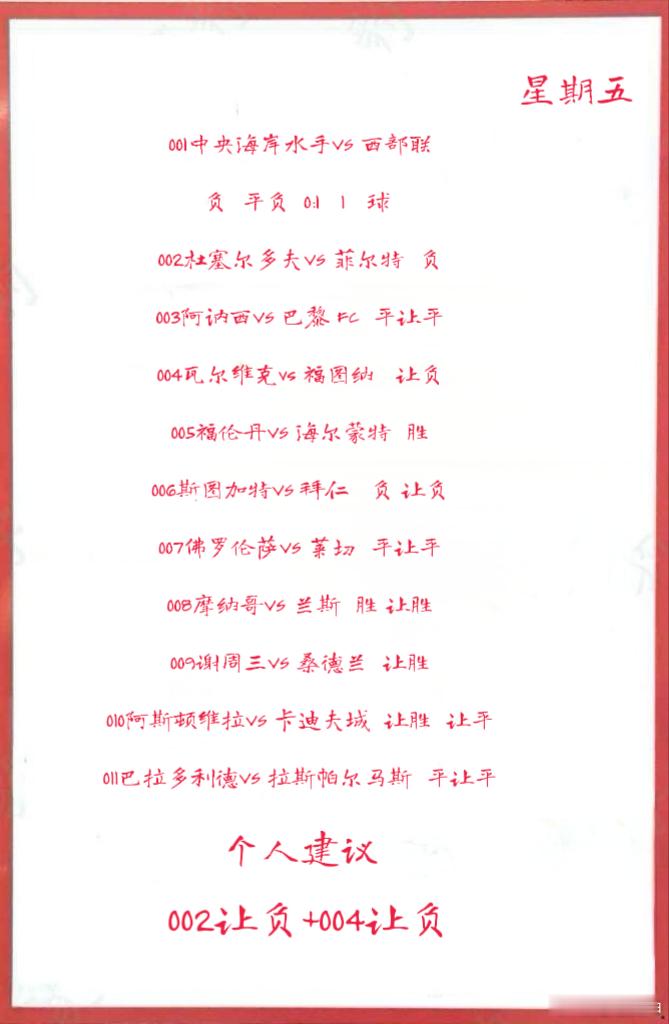 星期五
001中央海岸水手vs西部联
负 平负 0:1 1 球
002杜塞尔多夫vs菲尔特 负
003阿讷西vs巴黎FC 平让平
004瓦尔维克vs福图纳 让负
005福伦丹vs海尔蒙特 胜
006斯图加特vs拜仁 负让负
007佛罗伦萨vs莱切 平让平
008摩纳哥vs兰斯 胜让胜
009谢周三vs桑德兰 让胜
010阿斯顿维拉vs卡迪夫城 让胜 让平
011巴拉多利德vs拉斯帕尔马斯 平让平
个人建议
002让负+004让负